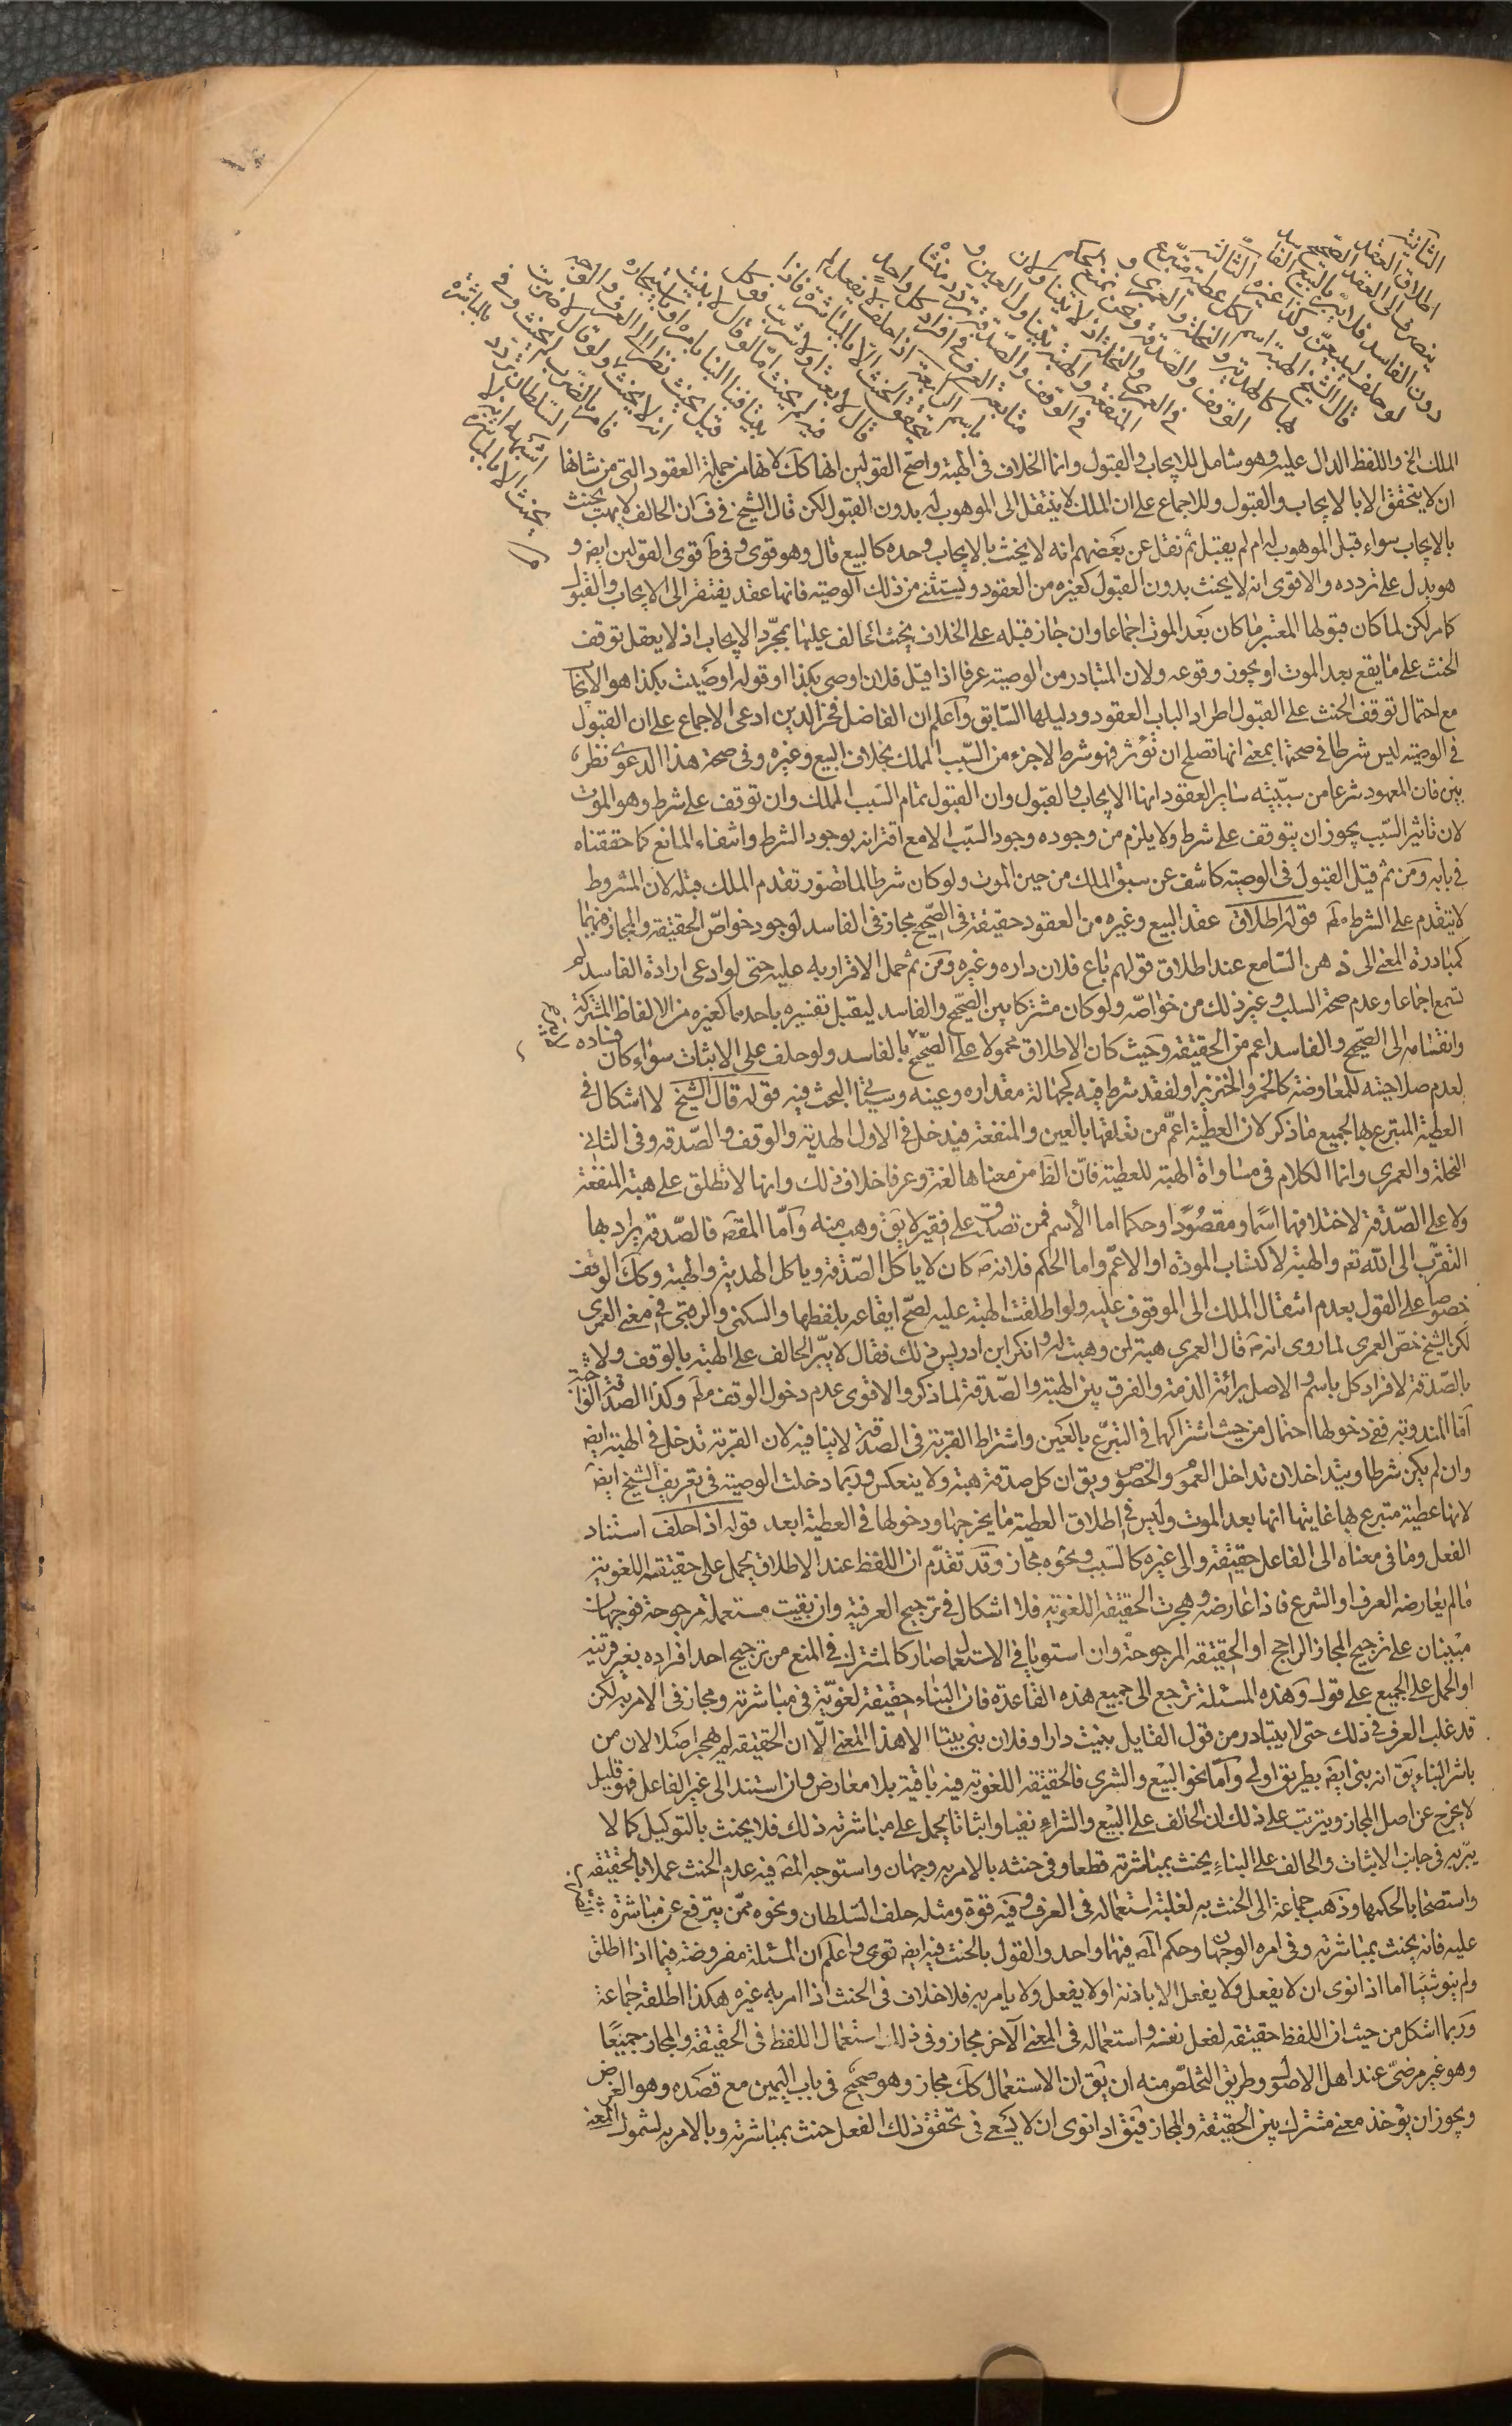 الثانية
اطلاق العقد
ينصرف الى العقد الصحيح
دون الفاسد فلا يبر بالبيع الفاسد
لو حلف ليبيعن وكذا غيره الثالثة
قال الشيخ الهبة اسم لكل عطية متبرع
بها كالهدية والنحلة والعمرى و
الوقف والصدقة ونحن نمنع الحكم
في العمرى والنحلة اذ لا يتناولان
المنفعة والهبة تتناول العين و
في الوقف والصدقة تردد منشأه
متابعة العرف في افراد كل واحد
باسم الرابعة اذا حلف لا يفعل لم
يتحقق الحنث الا بالمباشرة فاذا
قال لا بعت او لا شريت فوكل
فيه لم يحنث اما لو قال لا بنيت
بيتا فبناه البناء بامره او استيجاره
قيل يحنث نظرا الى العرف والوجه
انه لا يحنث ولو قال لا ضربت
فامر بالضرب لم يحنث وفي
السلطان تردد
اشبهه انه لا
يحنث الا بالمباشرة
الملك الخ واللفظ الدال عليه وهو شامل للايجاب والقبول وانما الخلاف في الهبة واصح القولين انها كك لانها من جملة العقود التي من شانها
ان لا يتحقق الا بالايجاب والقبول وللاجماع على ان الملك لا ينتقل الى الموهوب له بدون القبول لكن قال الشيخ في ف ان الحالف لا يهب يحنث
بالايجاب سواء قبل الموهوب له ام لم يقبل ثم نقل عن بعضهم انه لا يحنث بالايجاب وحده كالبيع قال وهو قوى وفي ط قوى القولين ايض و
هو يدل على تردده والاقوى انه لا يحنث بدون القبول كغيره من العقود ويستثنى من ذلك الوصية فانها عقد يفتقر الى الايجاب والقبول
كامر لكن لما كان قبولها المعتبر ما كان بعد الموت اجماعا وان جاز قبله على الخلاف يحنث الحالف عليها بمجرد الايجاب اذ لا يعقل توقف
الحنث على ما يقع بعد الموت او يجوز وقوعه ولان المتبادر من الوصية عرفا اذا قيل فلان اوصى بكذا او قوله اوصيت بكذا هو الايجاب
مع احتمال توقف الحنث على القبول اطراد الباب العقود ودليلها السابق واعلم ان الفاضل فخر الدين ادعى الاجماع على ان القبول
في الوصية ليس شرطا في صحتها بمعنى انها تصلح ان تؤثر فهو شرط لا جزء من السبب المملك بخلاف البيع وغيره وفي صحة هذا الدعوى نظر
بين فان المعهود شرعا من سببية ساير العقود انها الايجاب والقبول وان القبول تمام السبب المملك وان توقف على شرط وهو الموت
لان تاثير السبب يجوز ان يتوقف على شرط ولا يلزم من وجوده وجود السبب الا مع اقترانه بوجود الشرط وانتفاء المانع كما حققناه
في بابه ومن ثم قيل القبول في الوصية كاشف عن سبق الملك من حين الموت ولو كان شرطا لما تصور تقدم الملك قبله لان المشروط
لا يتقدم على الشرط قوله اطلاق عقد البيع وغيره من العقود حقيقة في الصحيح مجاز في الفاسد لوجود خواص الحقيقة والمجاز فيهما
كمبادرة المعنى الى ذهن السامع عند اطلاق قولهم باع فلان داره وغيره ومن ثم حمل الاقرار به عليه حتى لو ادعى ارادة الفاسد لم
تسمع اجماعا وعدم صحة السلب وغير ذلك من خواصه ولو كان مشتركا بين الصحيح والفاسد ليقبل تفسيره باحدهما كغيره من الالفاظ المشتركة
وانقسامه الى الصحيح والفاسد اعم من الحقيقة وحيث كان الاطلاق محمولا على الصحيح بالفاسد ولو حلف على الاثبات سواء كان فساده
لعدم صلاحيته للمعاوضة كالخمر والخنزير او لفقد شرط فيه كجهالة مقداره وعينه وسياتي البحث فيه قوله قال الشيخ لا اشكال في
العطية المتبرع بها لجميع ما ذكر لان العطية اعم من تعلقها بالعين والمنفعة فيدخل في الاول الهدية والوقف والصدقة وفي الثاني
النحلة والعمرى وانما الكلام في مساواة الهبة للعطية فان الظ من معناها لغة وعرفا خلاف ذلك وانها لا تطلق على هبة المنفعة
ولا على الصدقة لاختلافهما اسما ومقصودا وحكما اما الاسم فمن تصدق على فقير لا يق وهب منه واما المقصد فالصدقة يراد بها
التقرب الى الله تع والهبة لاكتساب المودة او الاعم واما الحكم فلانه ص كان لا ياكل الصدقة وياكل الهدية والهبة وكك الوقف
خصوصا على القول بعدم انتقال الملك الى الموقوف عليه ولو اطلقت الهبة عليه لصح ايقاعه بلفظها والسكنى والرقبى في معنى العمرى
لكن الشيخ خص العمرى لما روى انه ص قال العمرى هبة لمن وهبت له وانكر ابن ادريس ذلك فقال لا يبر الحالف على الهبة بالوقف ولا
بالصدقة لافراد كل باسم والاصل برائة الذمة والفرق بين الهبة والصدقة لما ذكر والاقوى عدم دخول الوقف مط وكذا الصدقة الواجبة
اما المندوبة ففي دخولها احتمال من حيث اشتراكهما في التبرع بالعين واشتراط القربة في الصدقة لا ينافيه لان القربة تدخل في الهبة ايض
وان لم يكن شرطا ويتداخلان تداخل العموم والخصوص ويق ان كل صدقة هبة ولا ينعكس وربما دخلت الوصية في تعريف الشيخ ايض
لانها عطية متبرع بها غايتها انها بعد الموت وليس في اطلاق العطية ما يخرجها ودخولها في العطية ابعد قوله اذا حلف استناد
الفعل وما في معناه الى الفاعل حقيقة والى غيره كالسبب ونحوه مجاز وقد تقدم ان اللفظ عند الاطلاق يحمل على حقيقته اللغوية
ما لم يعارضه العرف او الشرع فاذا عارضه وهجرت الحقيقة اللغوية فلا اشكال في ترجيح العرفية وان بقيت مستعملة مرجوحة فوجهان
مبينان على ترجيح المجاز الراجح او الحقيقة المرجوحة وان استويا في الاستعمال صار كالمشترك في المنع من ترجيح احد افراده بغير قرينة
او الحمل على الجميع على قول وهذه المسئلة ترجع الى جميع هذه القاعدة فان البناء حقيقة لغوية في مباشرته ومجاز في الامر به لكن
قد غلب العرف في ذلك حتى لا يتبادر من قول القايل بنيت دارا وفلان بنى بيتا الا هذا المعنى الا ان الحقيقة لم يهجر اصلا لان من
باشر البناء يق انه بنى ايض بطريق اولى واما نحو البيع والشرى فالحقيقة اللغوية فيه باقية بلا معارض وان استند الى غير الفاعل فهو قليل
لا يخرج عن اصل المجاز ويترتب على ذلك ان الحالف على البيع والشراء نفيا واثباتا يحمل على مباشرته ذلك فلا يحنث بالتوكيل كما لا
يبر به في جانب الاثبات والحالف على البناء يحنث بمباشرته قطعا وفي حنثه بالامر به وجهان واستوجه المص فيه عدم الحنث عملا بالحقيقة
واستصحابا لحكمها وذهب جماعة الى الحنث به لغلبة استعماله في العرف وفيه قوة ومثله حلف السلطان ونحوه ممن يترفع عن مباشرة
عليه فانه يحنث بمباشرته وفي امره الوجهان وحكم المص فيهما واحد والقول بالحنث فيه ايض قوى واعلم ان المسئلة مفروضة فيما اذا اطلق
ولم ينو شيئا اما اذا نوى ان لا يفعل ولا يفعل الا باذنه او لا يفعل ولا يامر به فلا خلاف في الحنث اذا امر به غيره هكذا اطلقه جماعة
وربما اشكل من حيث ان اللفظ حقيقة لفعل نفسه واستعماله في المعنى الآخر مجاز وفي ذلك استعمال اللفظ في الحقيقة والمجاز جميعا
وهو غير مرضي عند اهل الاصول وطريق التخلص منه ان يق ان الاستعمال كك مجاز وهو صحيح في باب اليمين مع قصده وهو الغرض
ويجوز ان يؤخذ معنى مشترك بين الحقيقة والمجاز فيق اذا نوى ان لا يسعى في تحقق ذلك الفعل حنث بمباشرته وبالامر به لشمول المعنى